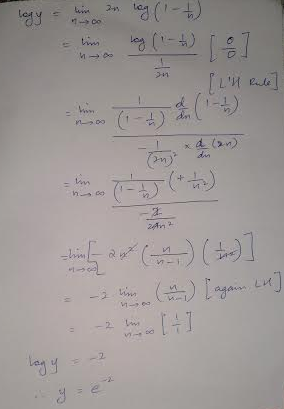 log y = lim n→∞ 2n log (1 - 1/n)
= lim n→∞ log (1 - 1/n) / (1/2n) [0/0]
[L'H Rule]
= lim n→∞ (1/(1 - 1/n) d/dn (1 - 1/n)) / (-1/(2n)² × d/dn (2n))
= lim n→∞ (1/(1 - 1/n) (+ 1/n²)) / (-2/2n²)
= lim n→∞ [- 2n² (n/(n-1)) (1/n²)]
= -2 lim n→∞ (n/(n-1)) [again LH]
= -2 lim n→∞ [1/1]
log y = -2
∴ y = e⁻²